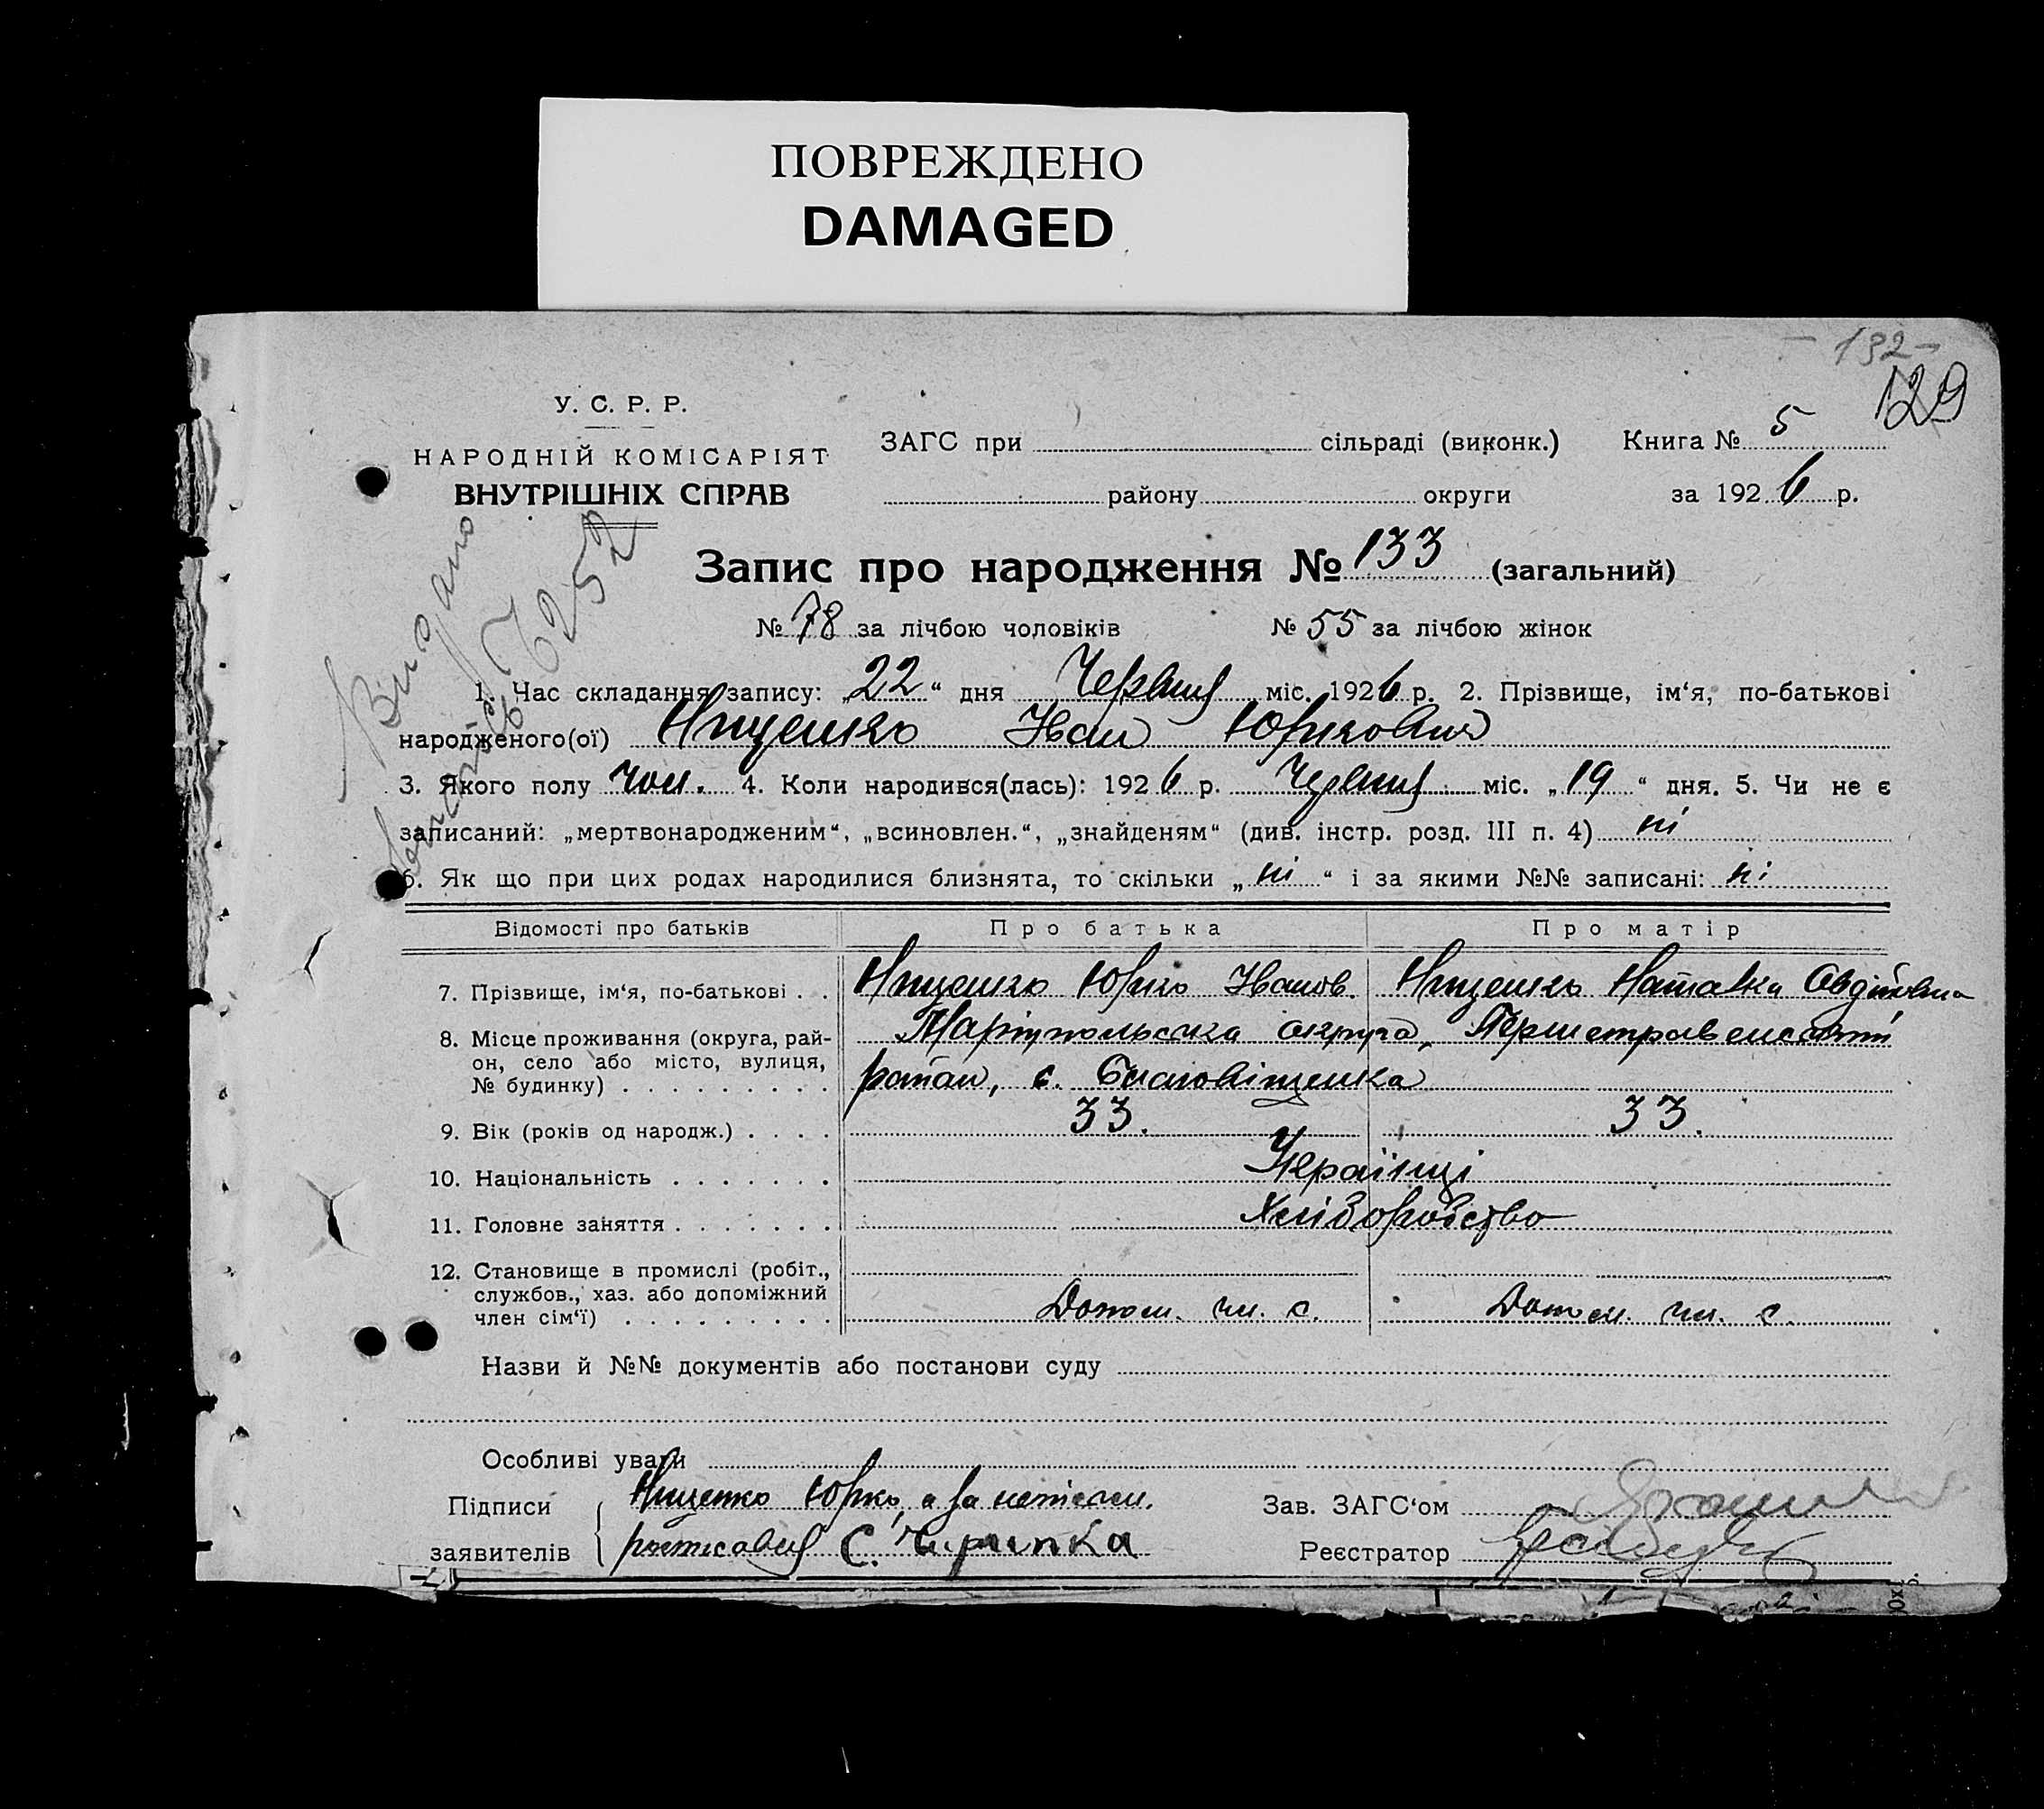 ПОВРЕЖДЕНО
DAMAGED
- 132 -
129
У. С. Р. Р.
НАРОДНІЙ КОМІСАРІЯТ
ВНУТРІШНІХ СПРАВ
ЗАГС при сільраді (виконк.) Книга № 5
району округи за 1926 р.
Запис про народження № 133 (загальний)
№ 78 за лічбою чоловіків № 55 за лічбою жінок
Видано
1. Час складання запису: „22“ дня Червня міс. 1926 р. 2. Прізвище, ім‘я, по-батькові
народженого(ої) Нищенко Іван Юркович
3. Якого полу чол. 4. Коли народився(лась): 1926 р. Червня міс. „19“ дня. 5. Чи не є
записаний: „мертвонародженим“, „всиновлен.“, „знайденям“ (див. інстр. розд. III п. 4) ні
6. Як що при цих родах народилися близнята, то скільки „ні“ і за якими №№ записані: ні
Відомості про батьків Про батька Про матір
7. Прізвище, ім‘я, по-батькові . . Нищенко Юрко Іванов. Нищенко Наталка Овдіївна
8. Місце проживання (округа, рай-
он, село або місто, вулиця,
№ будинку) . . . . . . . . .
Маріупольська округа, Першетравенський
район, с. Благовіщенка
9. Вік (років од народж.) . . . . 33. 33.
10. Національність . . . . . . . Українці
11. Головне заняття . . . . . . . Хліборобство
12. Становище в промислі (робіт.,
службов., хаз. або допоміжний
член сім‘ї) . . . . . . . . . Допом. чл. с. Допом. чл. с.
Назви й №№ документів або постанови суду
Особливі уваги
Підписи Нищенко Юрко, а за неписьм. Зав. ЗАГС‘ом
заявителів росписався С. Чирипка Реєстратор